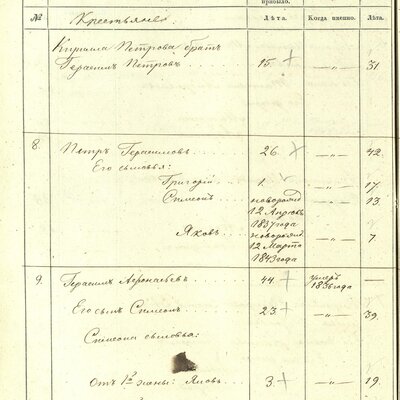 прибыло.
№ Крестьяне Лѣта. Когда именно. Лѣта.
Кирила Петрова братъ
Герасимъ Петровъ 15. — „ — 31
8. Петръ Герасимовъ 26. — „ — 42
Его сыновья:
Григорій 1. — „ — 17
Симеонъ новорожд — „ — 13
12 Апрѣля
1837 года
Яковъ новорожд — „ — 7
12 Марта
1843 года
9. Герасимъ 44. умеръ —
1836 года
Его сынъ Симеонъ 23. — „ — 39
Симеона сыновья:
Отъ 1й жены: Яковъ 3. — „ — 19